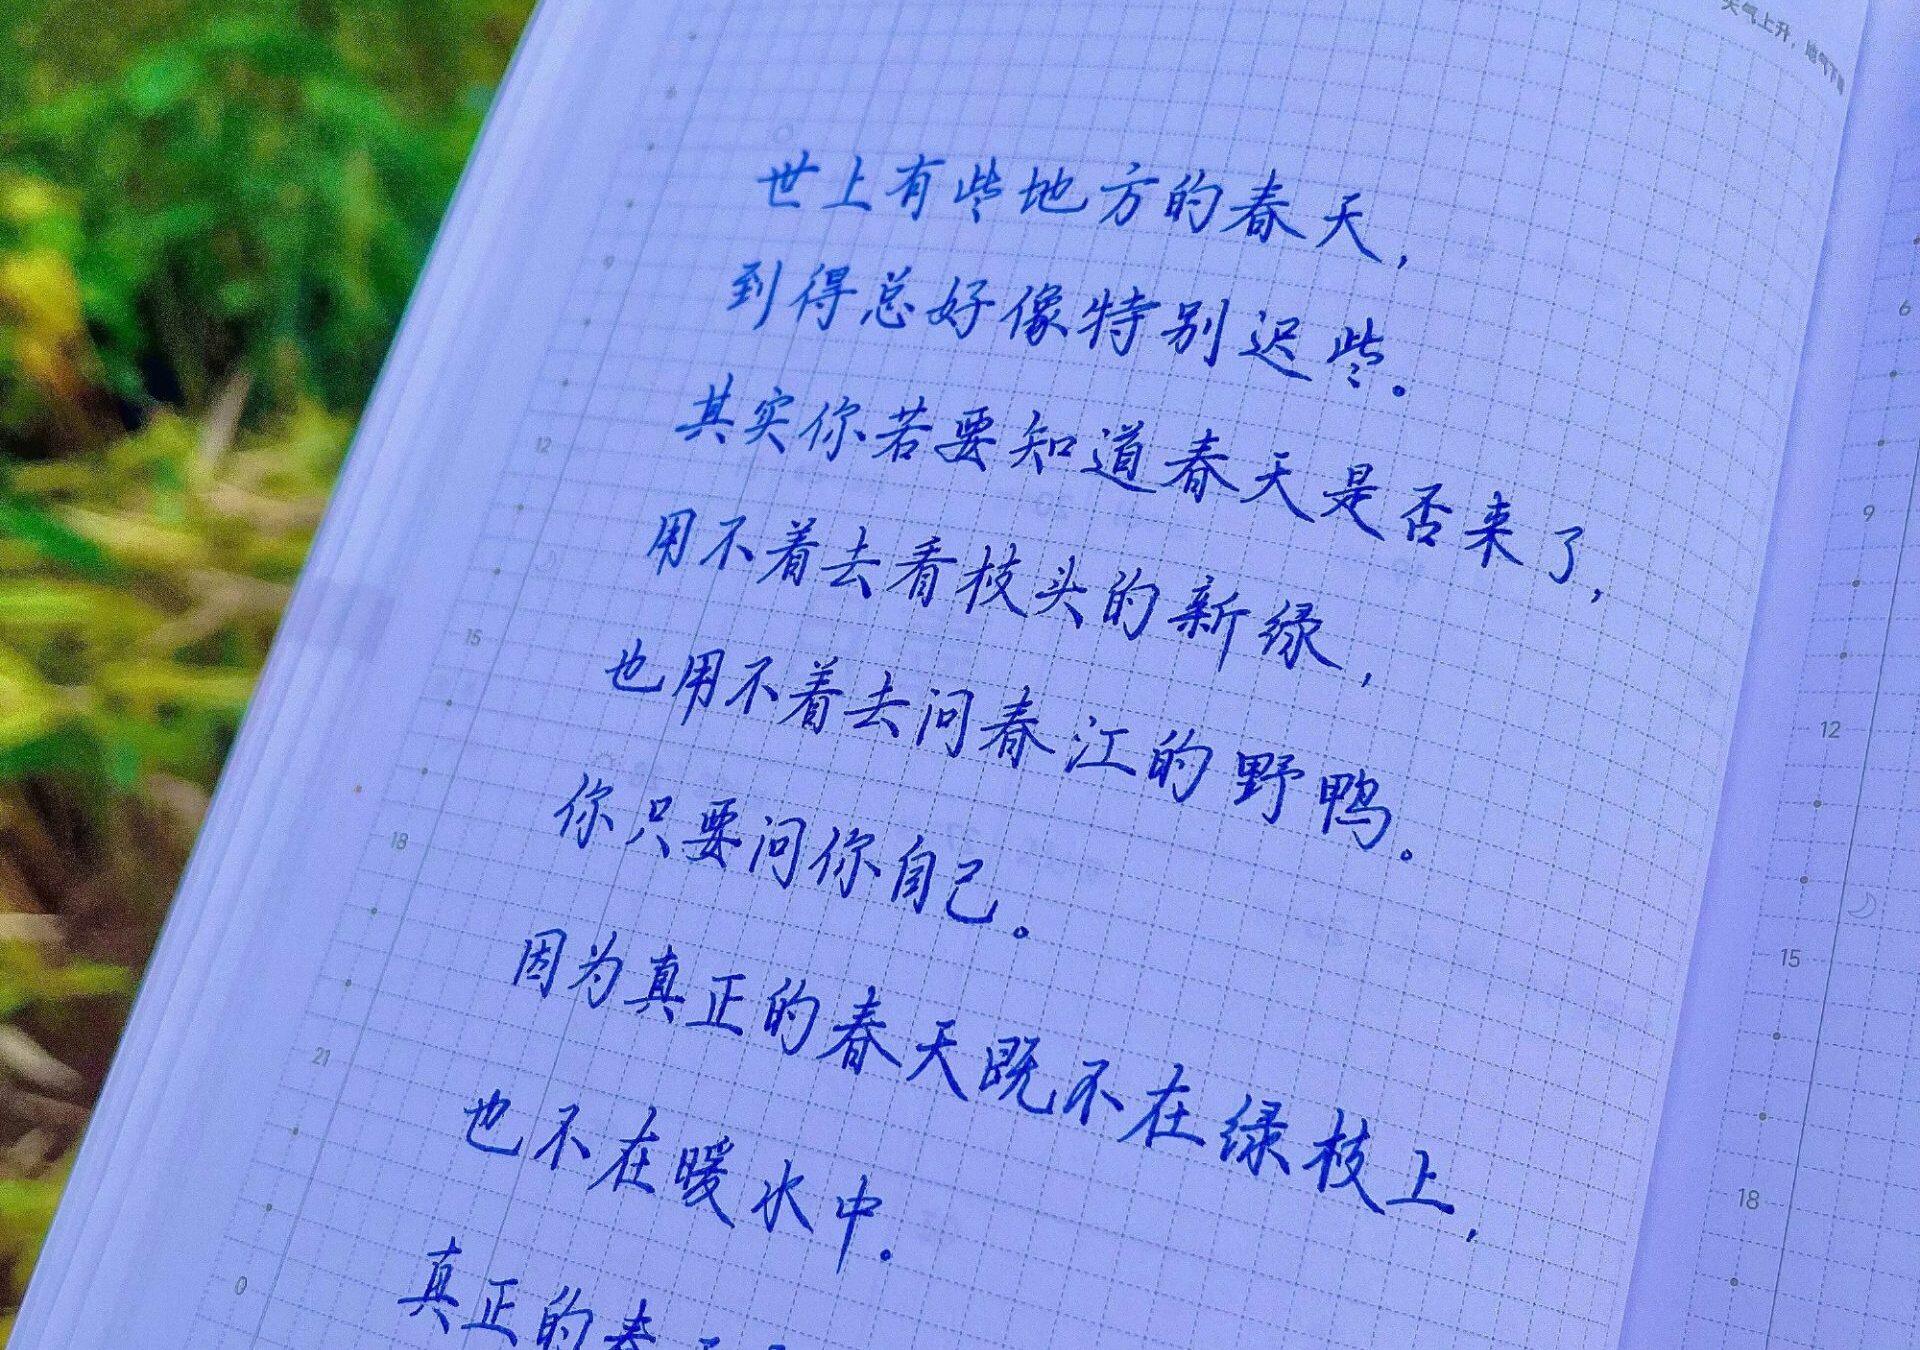 天气上升，
世上有些地方的春天，
到得总好像特别迟些。
其实你若要知道春天是否来了，
用不着去看枝头的新绿，
也用不着去问春江的野鸭。
你只要问你自己。
因为真正的春天既不在绿枝上，
也不在暖水中。
真正的春天
9
12
15
18
21
0
6
9
12
15
18